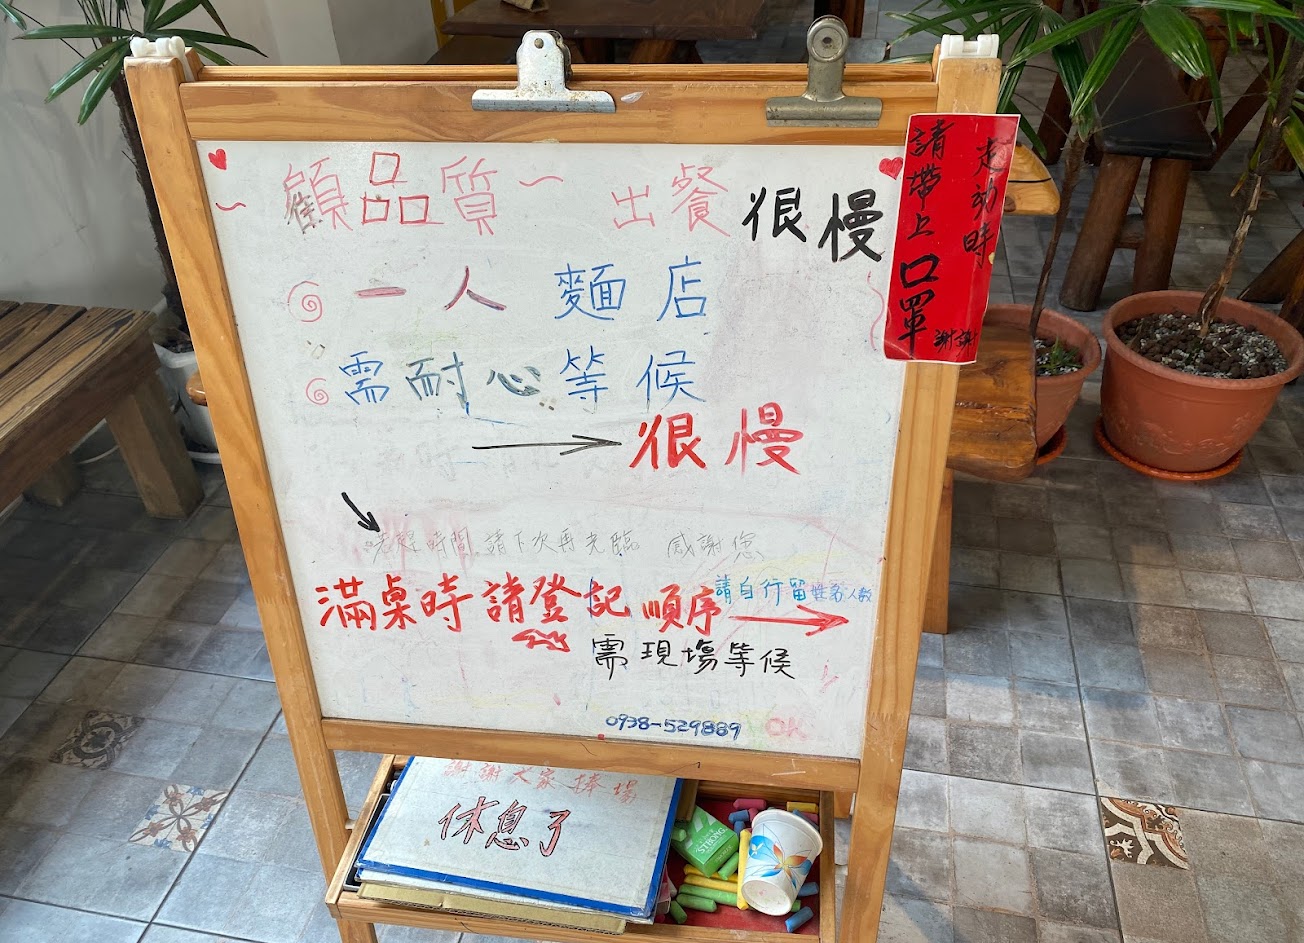 顧品質~ 出餐很慢
一人麵店
需耐心等候
→很慢
時間 請下次再光臨 感謝您
滿桌時請登記順序→
請自行留姓名人數
需現場等候
0938-529889
OK
走動時
請帶上
口罩
謝謝
謝謝大家捧場
休息了
STRONG